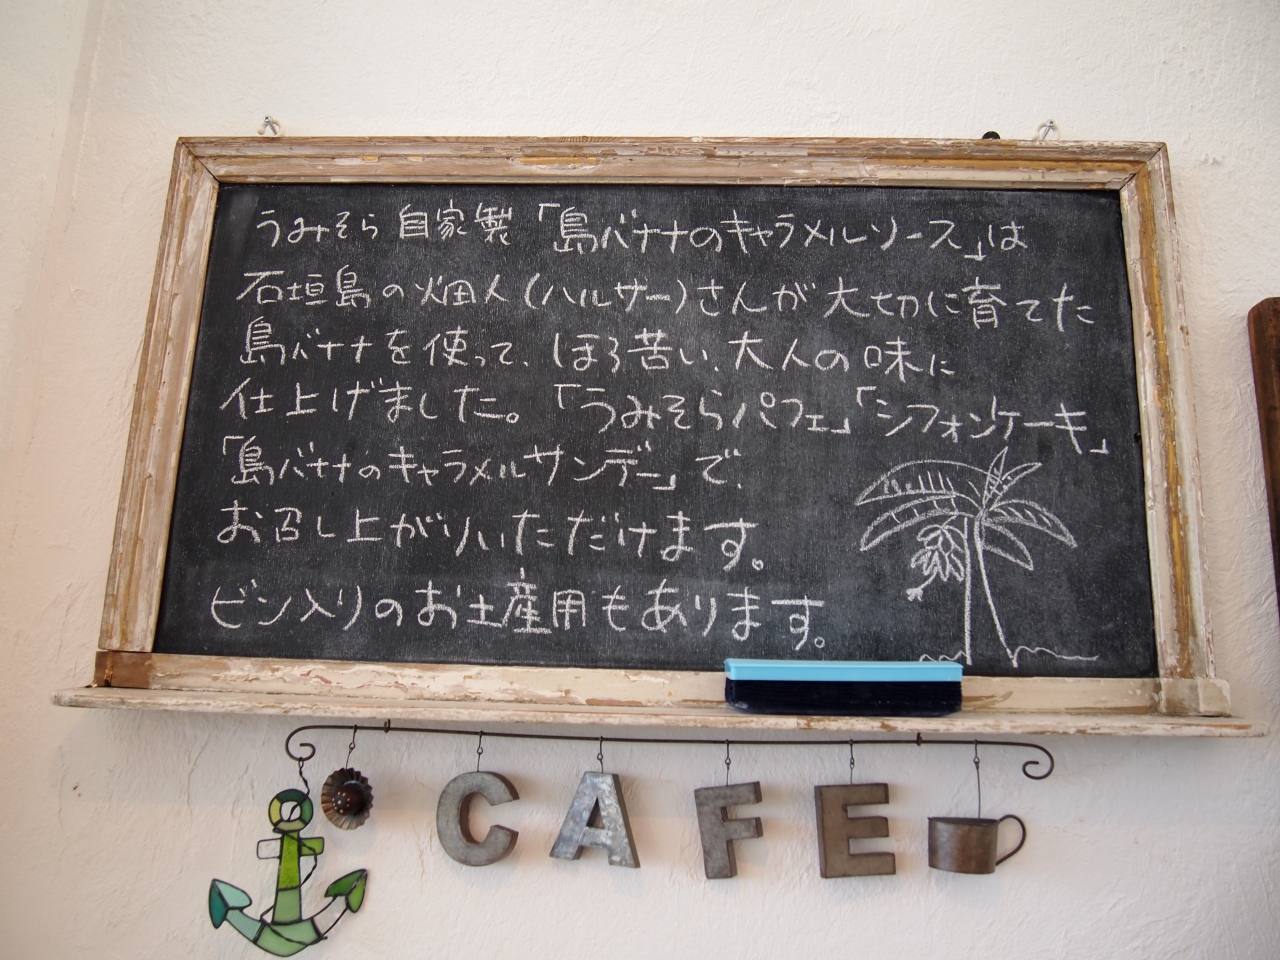 うみそら自家製「島バナナのキャラメルソース」は
石垣島の畑人(ハルサー)さんが大切に育てた
島バナナを使って、ほろ苦い、大人の味に
仕上げました。「うみそらパフェ」「シフォンケーキ」
「島バナナのキャラメルサンデー」で、
お召し上がりいただけます。
ビン入りのお土産用もあります。
CAFE